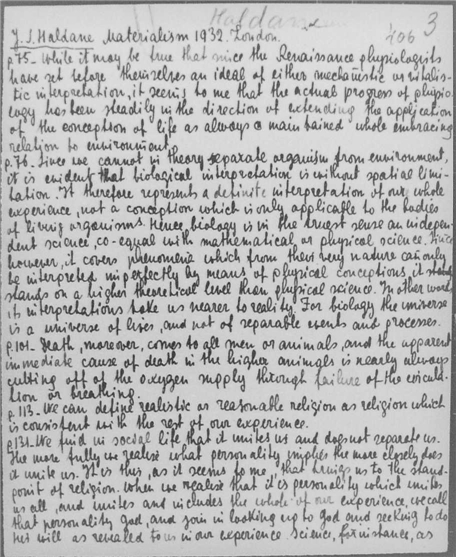 Haldane
406 3
J.J.Haldane Materialism 1932. London.
p.75- While it may be true that since the Renaissance physiologists
have set before themselves an ideal of either mechanistic or vitalis-
tic interpretation, it seems to me that the actual progress of physio-
logy has been steadily in the direction of extending the application
of the conception of life as always a maintained whole embracing
relation to environment.
p.76. Since we cannot in theory separate organism from environment,
it is evident that biological interpretation is without spatial limi-
tation. It therefore represents a definite interpretation of our whole
experience, not a conception which is only applicable to the bodies
of living organisms. Hence, biology is in the truest sense an indepen-
dent science, co-equal with mathematical or physical science. Since
however, it covers phenomena which from their very nature can only
be interpreted imperfectly by means of physical conceptions, it
stands on a higher theoretical level than physical science. In other words
its interpretations take us nearer to reality. For biology the universe
is a universe of lives, and not of separable events and processes.
p.101- Death, moreover, comes to all men or animals, and the apparent
immediate cause of death in the higher animals is nearly always
cutting off of the oxygen supply through failure of the circula-
tion or breathing.
p.113- We can define realistic or reasonable religion as religion which
is consistent with the rest of our experience.
p.131- We find in social life that it unites us and does not separate us.
The more fully we realise what personality implies the more closely does
it unite us. It is this, as it seems to me, that brings us to the stand-
point of religion. When we realise that it is personality which unites
us all, and unites and includes the whole of our experience, we call
that personality God, and join in looking up to God and seeking to do
His will as revealed to us in our experience. Science, for instance, as